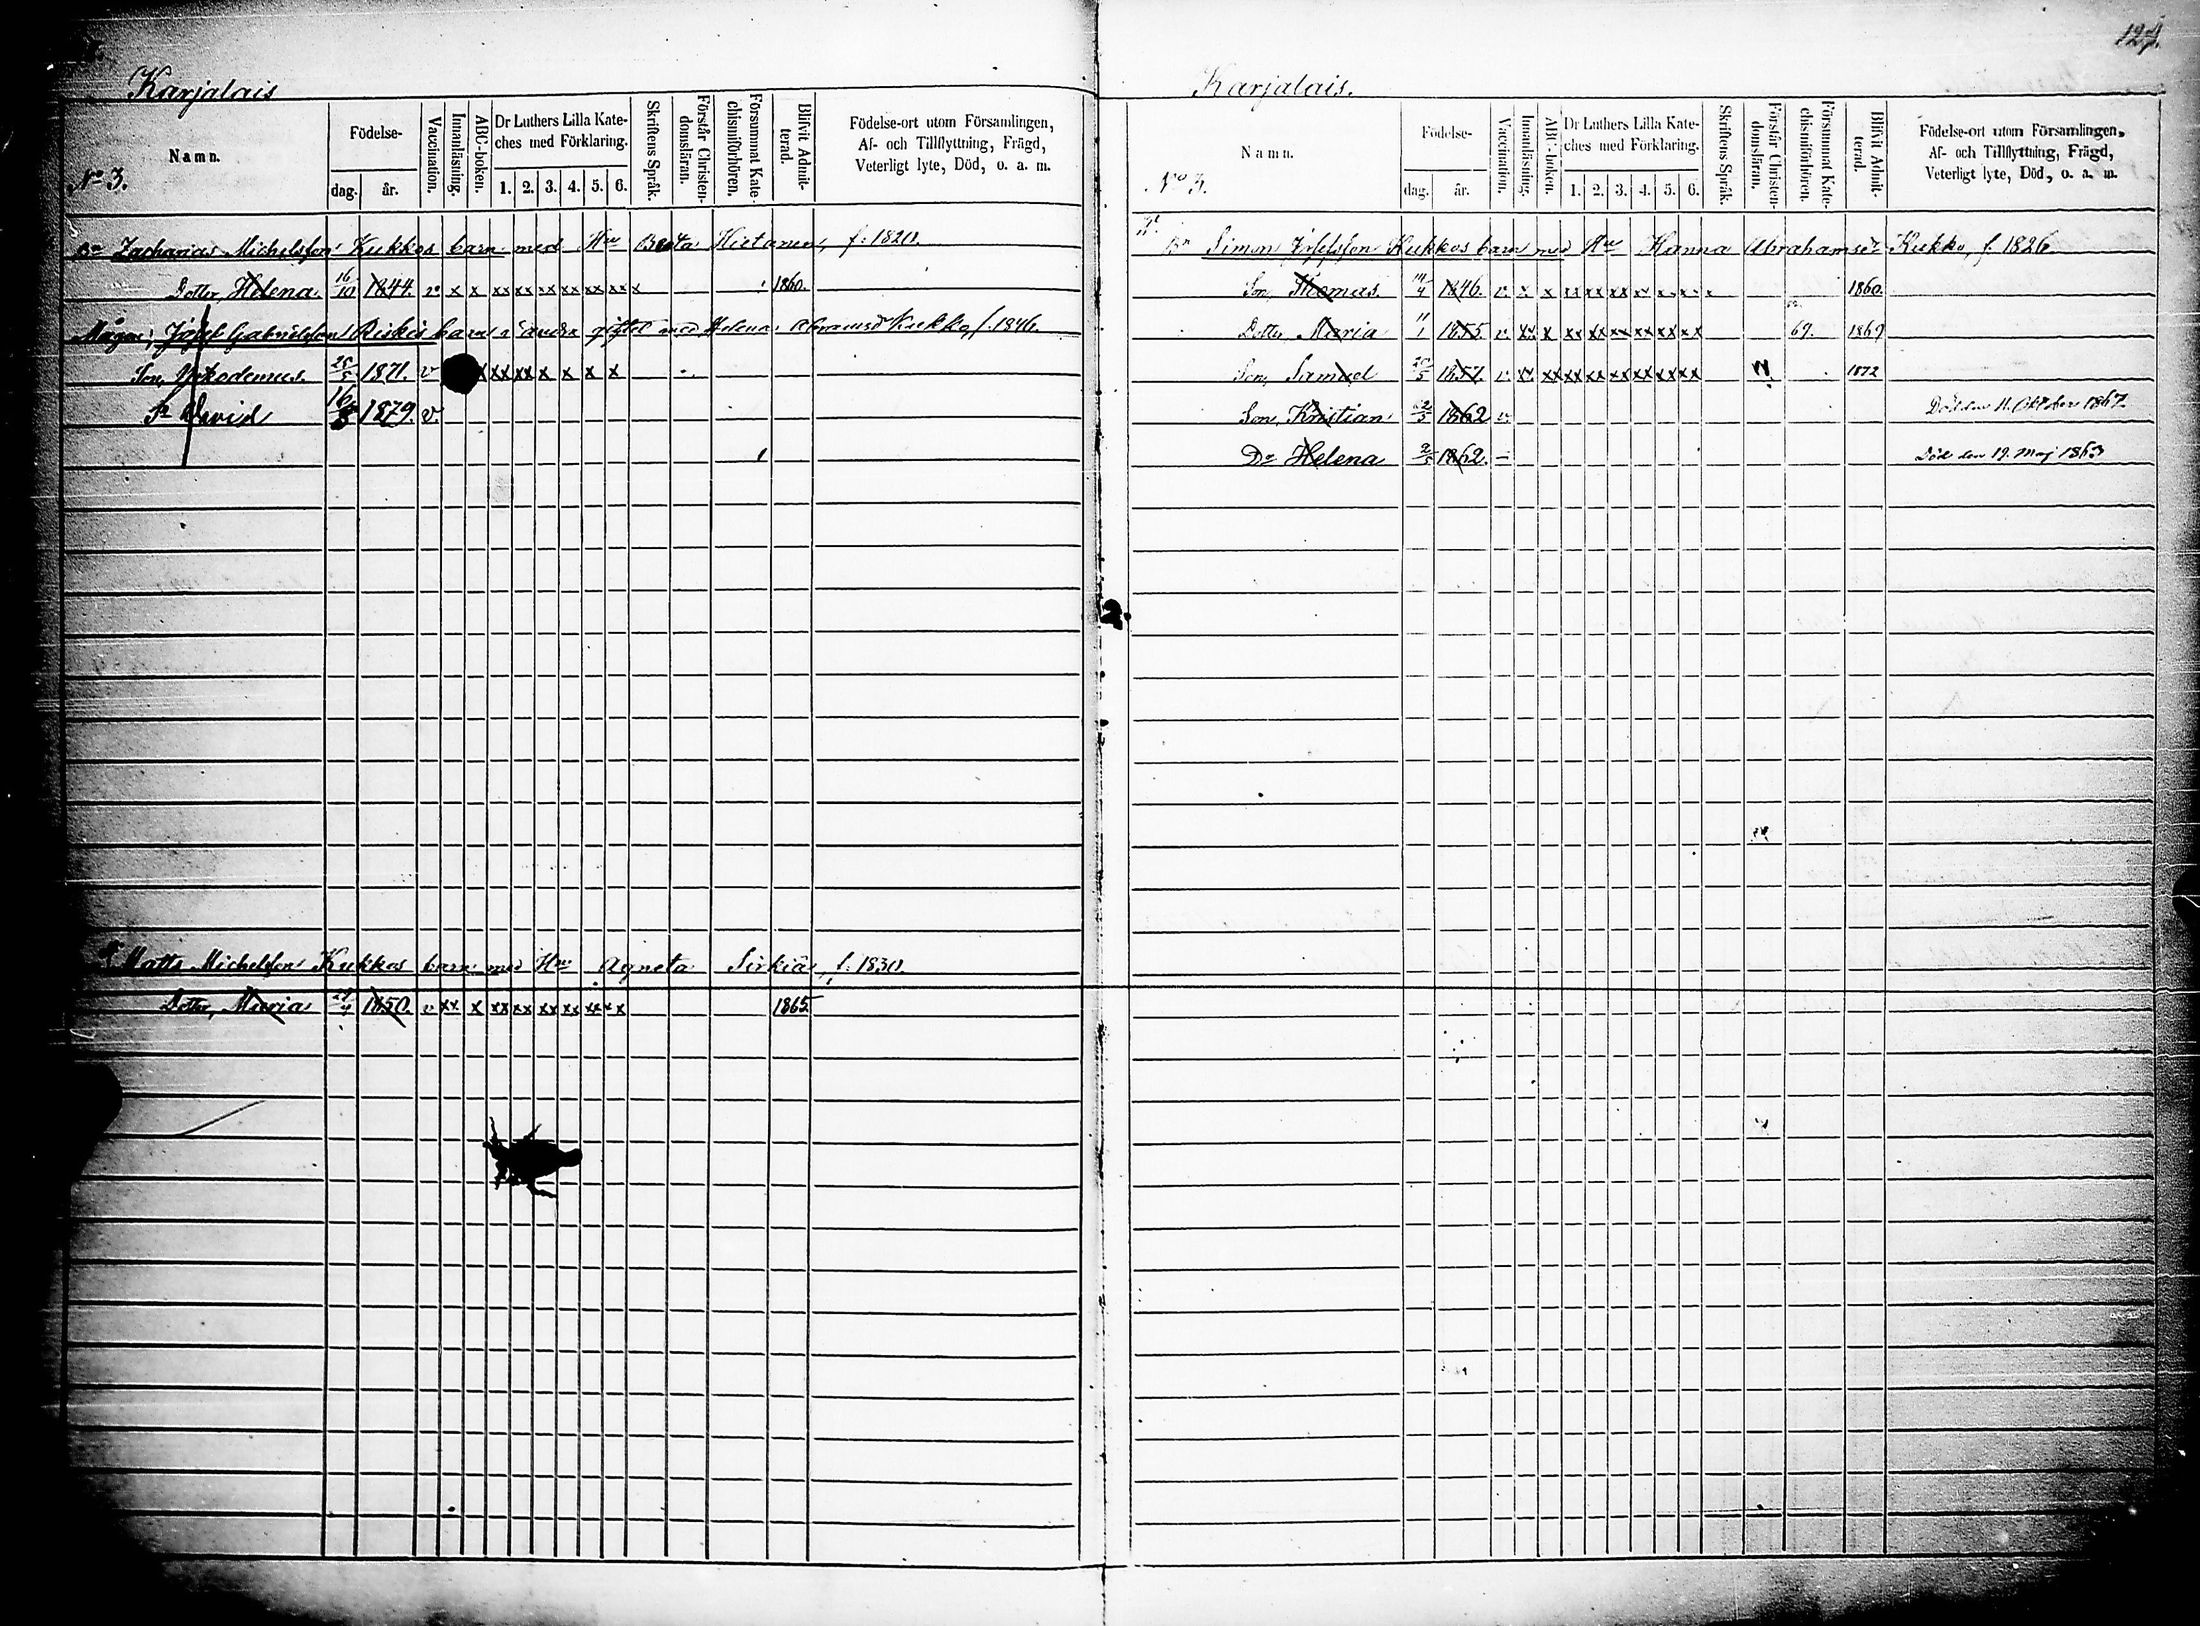 Karjalais
No 3.
Namn.
Födelse-
dag.
år.
Vaccination.
Innanläsning.
ABC-boken.
Dr Luthers Lilla Kate-
ches med Förklaring.
1. 2. 3. 4. 5. 6.
Skriftens Språk.
Förstår Christen-
domsläran.
Försummat Kate-
chismiförhören.
Blifvit Admit-
terad.
Födelse-ort utom Församlingen,
Af- och Tillflyttning, Frägd,
Veterligt lyte, Död, o. a. m.
Bn Zacharias Michelsson Kukkos barn med Hu Beata Hietanen, f. 1820.
Dotter, Helena. 16/10 1844. v x x xx xx xx xx xx xx x 1860.
Mågen, Josef Gabrielsson Riskis barn i andra giftet med Helena Abramsd Kukko f. 1846.
Son, Nikodemus. 28/5 1871. v x xx xx x x x x
Sn David 16/3 1879. v.
Matts Michelsson Kukkos barn med Hu Agneta Sirkiä, f. 1830.
Dotter, Maria 29/4 1850. v xx x xx xx xx xx xx xx 1865
124.
Karjalais.
No 3.
Namn.
Födelse-
dag.
år.
Vaccination.
Innanläsning.
ABC-boken.
Dr Luthers Lilla Kate-
ches med Förklaring.
1. 2. 3. 4. 5. 6.
Skriftens Språk.
Förstår Christen-
domsläran.
Försummat Kate-
chismiförhören.
Blifvit Admit-
terad.
Födelse-ort utom Församlingen,
Af- och Tillflyttning, Frägd,
Veterligt lyte, Död, o. a. m.
Bn Simon Kukkos barn med Hu Hanna Abrahamsdr Kukko, f. 1826.
Son, Thomas. 14/4 1846. v. x x xx xx xx x x x x 1860.
Dotter Maria 11/1 1855. v. xx x xx xx xx xx xx xx 69. 1869
Son, Samuel 1857. v. xx xx xx xx xx xx xx xx 1872
Son, Kristian 22/5 1862 v. Död den 11. Oktober 1867.
Dr Helena 2/5 1862. – Död den 19. Maj 1863